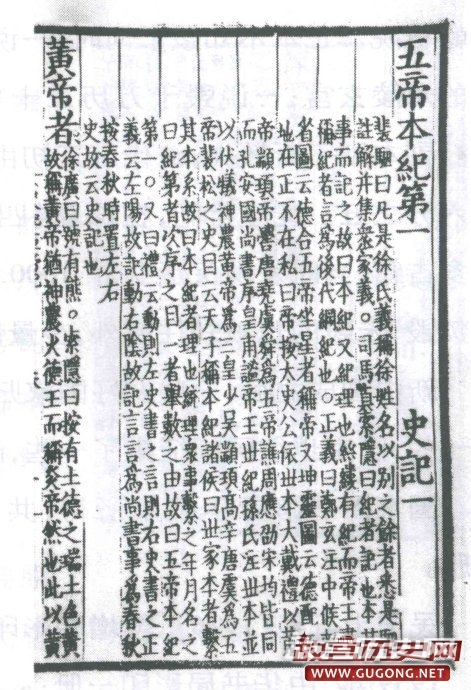 五帝本紀第一　史記一
裴駰曰凡是徐氏義稱徐姓名以別之餘者悉是駰
註解并集衆家義。司馬貞索隱曰紀者記也本其
事而記之故曰本紀又紀理也絲縷有紀而帝王書
稱紀者言爲後代綱紀也。正義曰鄭玄注中候勑
省圖云德合五帝坐星者稱帝又坤靈圖云德配天
地在正不在私曰帝按太史公依世本大戴禮以黃
帝顓頊帝嚳唐堯虞舜爲五帝譙周應劭宋均皆同
而孔安國尚書序皇甫謐帝王世紀孫氏注世本並
以伏犧神農黃帝爲三皇少昊顓頊高辛唐虞爲五
帝裴松之史目云天子稱本紀諸侯曰世家本者繫
其本系故曰本紀者理也統理衆事繫之年月名之
曰紀第者次序之目一者舉數之由故曰五帝本紀
第一。又曰禮云動則左史書之言則右史書之正
義云左陽故記動右陰故記言言爲尚書事爲春秋
按春秋時置左右
史故云史記也
黃帝者
徐廣曰號有熊。索隱曰按有土德之瑞土色黃
故稱黃帝猶神農火德王而稱炎帝然也此以黃
故宫历史网
WWW.GUGONG.NET